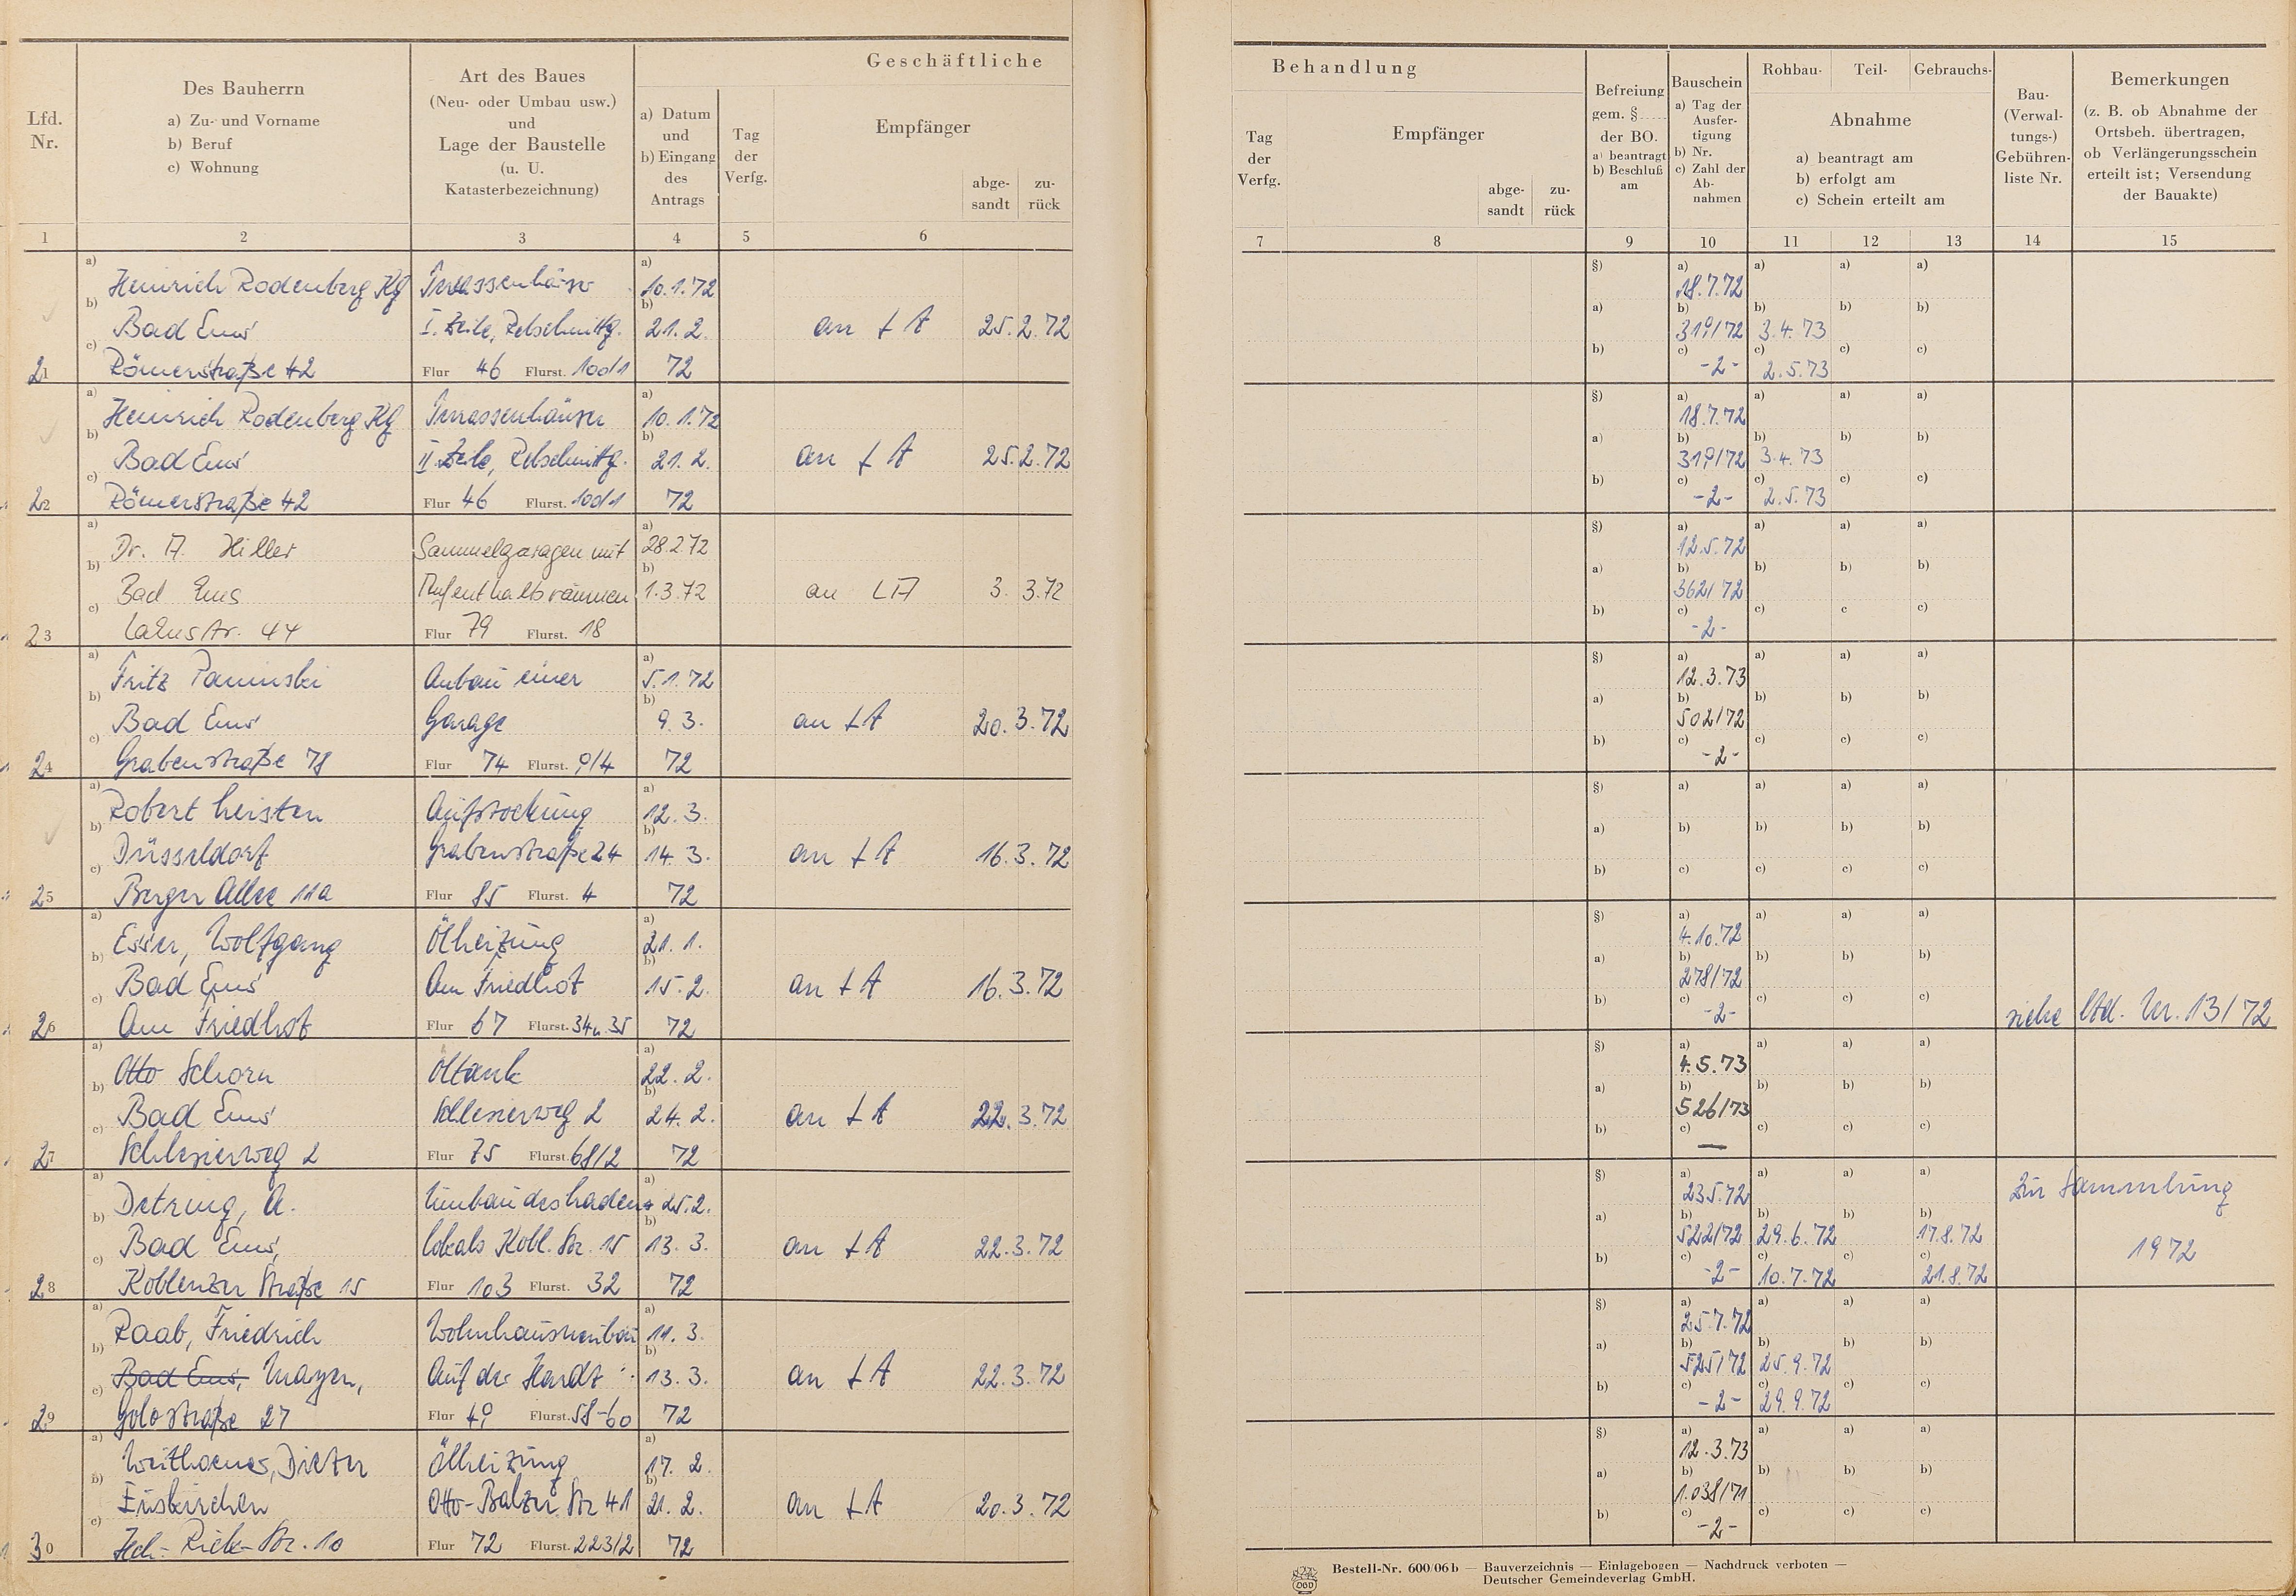 Geschäftliche
Lfd. Nr.
Des Bauherrn
a) Zu- und Vorname
b) Beruf
c) Wohnung
Art des Baues
(Neu- oder Umbau usw.)
und
Lage der Baustelle
(u. U.
Katasterbezeichnung)
a) Datum
und
b) Eingang
des
Antrags
Tag
der
Verfg.
Empfänger
abge-
sandt
zu-
rück
1 2 3 4 5 6
a) Heinrich Rodenberg Kg Terrassenhäuser a) 10.1.72
b) Bad Ems I. Zeile, b) 21.2. an LA 25.2.72
c) 21 Römerstraße 42 Flur 46 Flurst. 72
a) Heinrich Rodenberg Kg Terrassenhäuser a) 10.1.72
b) Bad Ems II. Zeile, b) 21.2. an LA 25.2.72
c) 22 Römerstraße 42 Flur 46 Flurst. 72
a) Dr. A. Hiller Sammelgaragen mit a) 28.2.72
b) Bad Ems Aufenthaltsräumen b) 1.3.72 an LA 3. 3.72
c) 23 Lahnstr. 44 Flur 79 Flurst. 18
a) Fritz Paminski Anbau einer a) 5.1.72
b) Bad Ems Garage b) 9.3. an LA 20.3.72
c) 24 Grabenstraße 78 Flur 74 Flurst. 9/4 72
a) Robert Leisten Aufstockung a) 12.3.
b) Düsseldorf Grabenstraße 24 b) 14.3. an LA 16.3.72
c) 25 Berger Allee 11a Flur 85 Flurst. 4 72
a) Esser, Wolfgang Ölheizung a) 21.1.
b) Bad Ems Am Friedhof b) 15.2. an LA 16.3.72
c) 26 Am Friedhof Flur 67 Flurst. 34 u. 35 72
a) Otto Schorn Öltank a) 22.2.
b) Bad Ems Schlesierweg 2 b) 24.2. an LA 22.3.72
c) 27 Schlesierweg 2 Flur 75 Flurst. 68/2 72
a) Detring, A. Umbau des Laden- a) 25.2.
b) Bad Ems, lokals Kobl. Str. 15 b) 13.3. an LA 22.3.72
c) 28 Koblenzer Straße 15 Flur 103 Flurst. 32 72
a) Raab, Friedrich Wohnhausneubau a) 11.3.
b) Bad Ems, Mayen, Auf der Hardt b) 13.3. an LA 22.3.72
c) 29 Golostraße 27 Flur 49 Flurst. 58-60 72
a) Dieter Ölheizung a) 17.2.
b) Euskirchen Otto-Balzer Str 41 b) 21.2. an LA 20.3.72
c) 30 Str. 10 Flur 72 Flurst. 223/2 72
Behandlung
Tag
der
Verfg.
Empfänger
abge-
sandt
zu-
rück
Befreiung
gem. §
der BO.
a) beantragt
b) Beschluß
am
Bauschein
a) Tag der
Ausfer-
tigung
b) Nr.
c) Zahl der
Ab-
nahmen
Rohbau- Teil- Gebrauchs-
Abnahme
a) beantragt am
b) erfolgt am
c) Schein erteilt am
Bau-
(Verwal-
tungs-)
Gebühren-
liste Nr.
Bemerkungen
(z. B. ob Abnahme der
Ortsbeh. übertragen,
ob Verlängerungsschein
erteilt ist; Versendung
der Bauakte)
7 8 9 10 11 12 13 14 15
§) a) 18.7.72 a) a) a)
a) b) 319/72 b) 3.4.73 b) b)
b) c) -2- c) 2.5.73 c) c)
§) a) 18.7.72 a) a) a)
a) b) 319/72 b) 3.4.73 b) b)
b) c) -2- c) 2.5.73 c) c)
§) a) 12.5.72 a) a) a)
a) b) 362/72 b) b) b)
b) c) -2- c) c c)
§) a) 12.3.73 a) a) a)
a) b) 502/72 b) b) b)
b) c) -2- c) c) c)
§) a) a) a) a)
a) b) b) b) b)
b) c) c) c) c)
§) a) 4.10.72 a) a) a)
a) b) 278/72 b) b) b)
b) c) -2- c) c) c) siehe lfd. Nr. 13/72
§) a) 4.5.73 a) a) a)
a) b) 526/73 b) b) b)
b) c) — c) c) c)
§) a) 23.5.72 a) a) a) Zur Sammlung
a) b) 522/72 b) 29.6.72 b) b) 17.8.72 1972
b) c) -2- c) 10.7.72 c) c) 21.8.72
§) a) 25.7.72 a) a) a)
a) b) 525/72 b) 25.9.72 b) b)
b) c) -2- c) 29.9.72 c) c)
§) a) 12.3.73 a) a) a)
a) b) 1.038/71 b) b) b)
b) c) -2- c) c) c)
Bestell-Nr. 600/06 b — Bauverzeichnis — Einlagebogen — Nachdruck verboten —
Deutscher Gemeindeverlag GmbH.